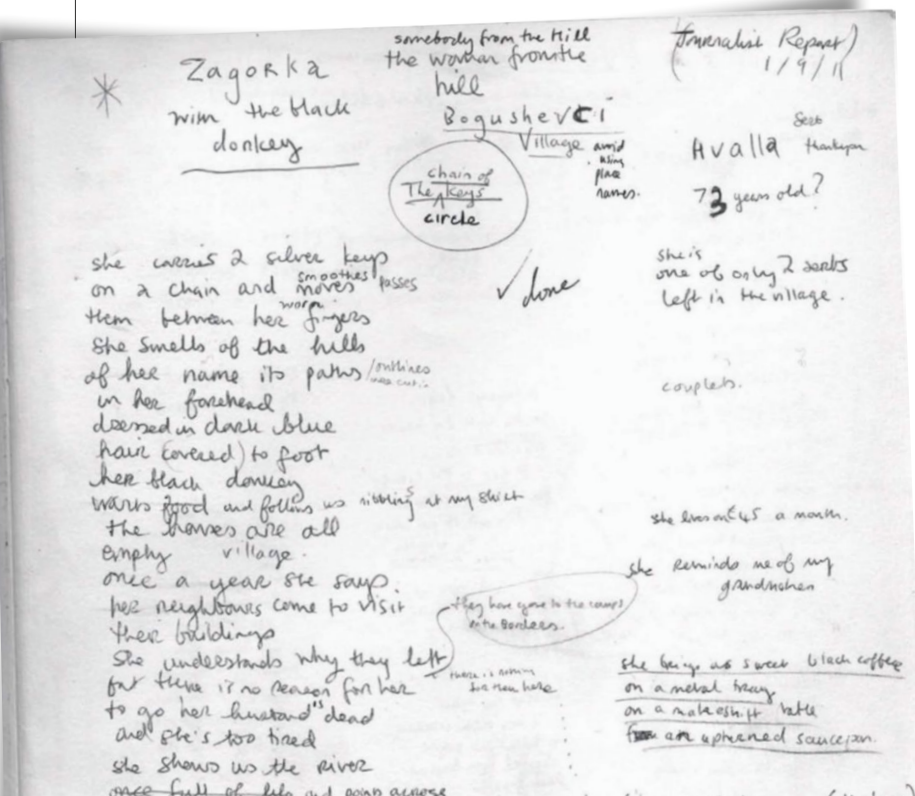 Zagorka
with the black
donkey
somebody from the Hill
the woman from the
hill
Bogushevci
Village
avoid
using
place
names.
chain of
The keys
circle
(Journalist Report)
1/9/11
Avalla
73 years old?
she carries 2 silver keys
on a chain and moves smoothes passes
them between her worn fingers
she smells of the hills
of her name its paths /outlines
in her forehead
dressed in dark blue
hair (covered) to foot
her black donkey
wants food and follows us nibbling at my skirt
the houses are all
empty village.
once a year she says
her neighbours come to visit
their buildings
she understands why they left
but there is no reason for her
to go her husband's dead
and she's too tired
she shows us the river
once full of life and goats across
✓ done
they have gone to the camps
on the Borders.
there is nothing
for them here
she is
one of only 2 serbs
left in the village.
couplets.
she lives on £45 a month.
she Reminds me of my
grandmother
she brings us sweet black coffee
on a metal tray
on a makeshift table
an upturned saucepan.